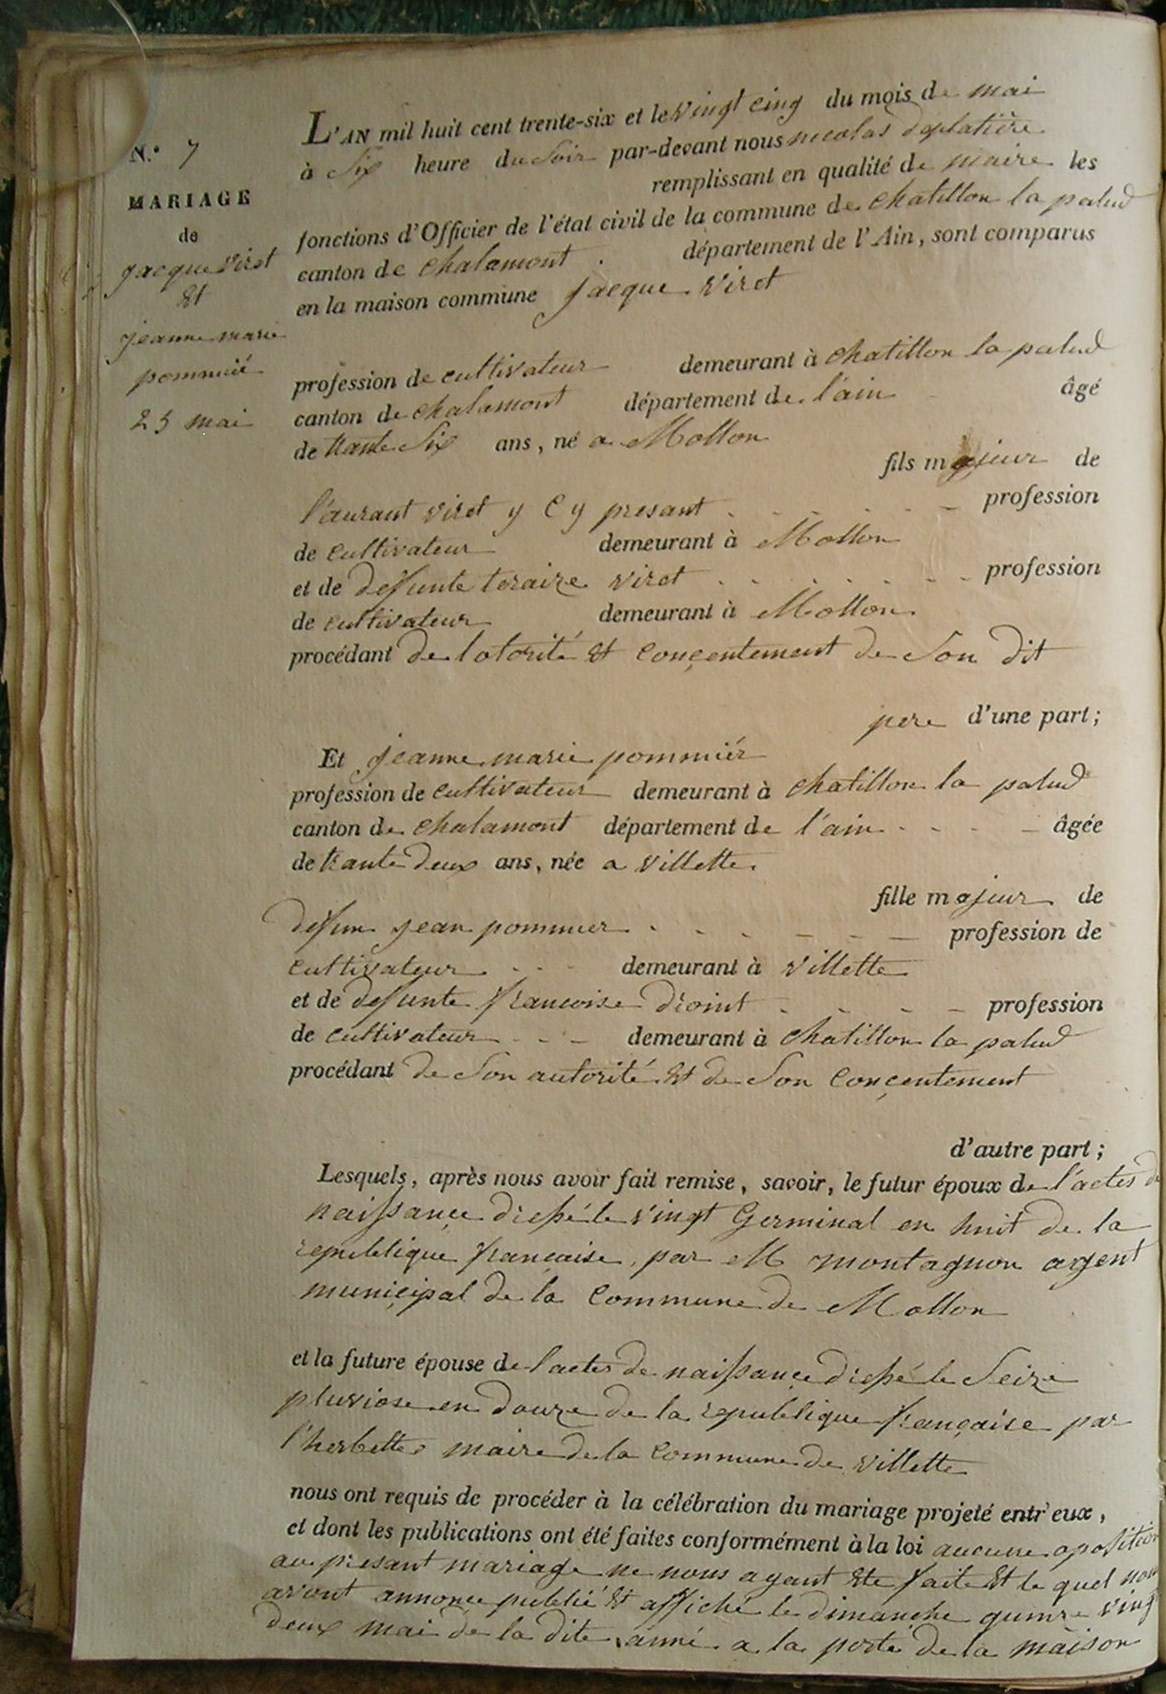 N.° 7
MARIAGE
de
jacque viret
Et
jeanne marie
pommiér
25 mai
L'AN mil huit cent trente-six et le vingt cinq du mois de mai
à Six heure du Soir par-devant nous nicolas deplatière
remplissant en qualité de maire les
fonctions d'Officier de l'état civil de la commune de chatillon la palud
canton de chalamont département de l'Ain, sont comparus
en la maison commune jacque viret
profession de cultivateur demeurant à chatillon la palud
canton de chalamont département de l'ain âgé
de trante Six ans, né a Mollon
fils majeur de
l'aurant viret y Cy presant profession
de cultivateur demeurant à Mollon
et de defunte teraize viret profession
de cultivateur demeurant à Mollon
procédant de lotorité Et conçentement de Son dit
pere d'une part;
Et jeanne marie pommiér
profession de cultivateur demeurant à chatillon la palud
canton de chalamont département de l'ain âgée
de trante deux ans, née a villette
fille majeur de
defun jean pommier profession de
cultivateur demeurant à villette
et de defunte francoise droint profession
de cultivateur demeurant à chatillon la palud
procédant de Son autorité Et de Son conçentement
d'autre part;
Lesquels, après nous avoir fait remise, savoir, le futur époux de l'actes de
naissançe dressé le vingt Germinal en huit de la
republique française, par M montagnon argent
muniçipal de la Commune de Mollon
et la future épouse de l'actes de naissançe dressé le Seize
pluviose en douze de la republique française par
l'herbette maire de la Commune de villette
nous ont requis de procéder à la célébration du mariage projeté entr'eux,
et dont les publications ont été faites conformément à la loi aucune oposition
au presant mariage ne nous ayant Ete faite Et le quel nous
avont annonce publié Et affiché le dimanche quinze vingt
deux mai de la dite anné a la porte de la maison